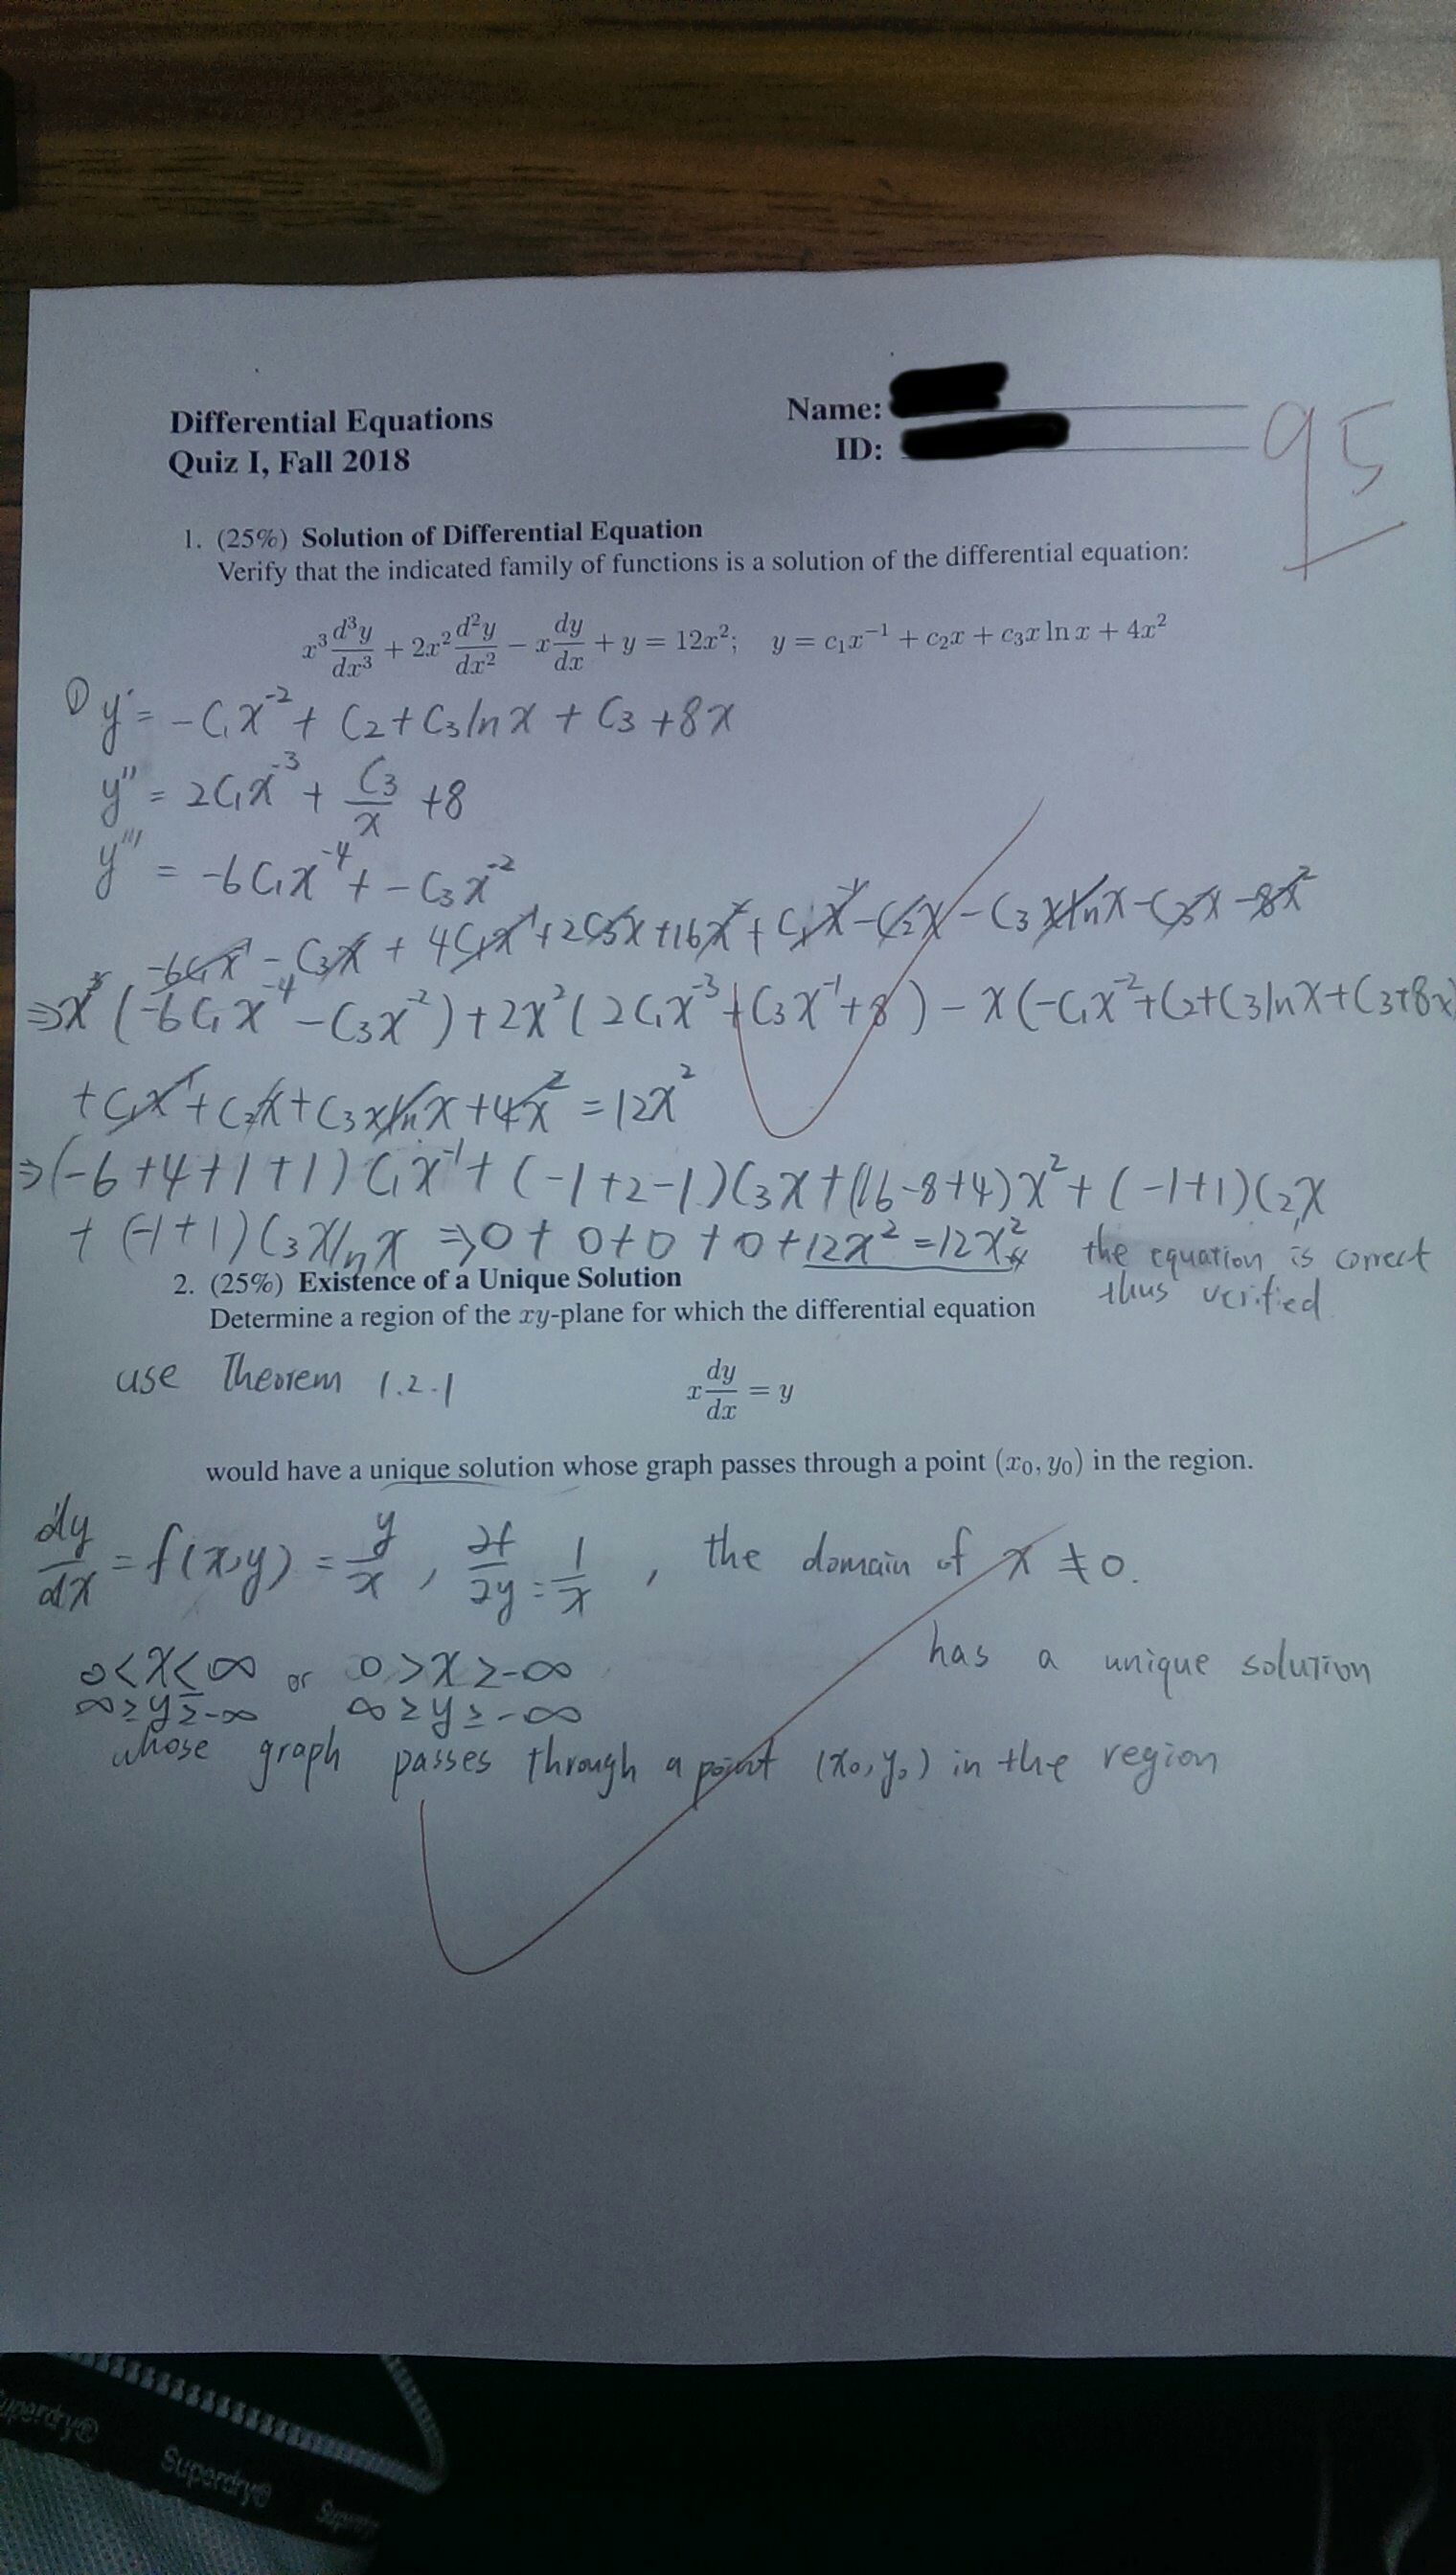 Differential Equations
Quiz I, Fall 2018
Name:
ID:
95
1. (25%) Solution of Differential Equation
Verify that the indicated family of functions is a solution of the differential equation:
x³ d³y/dx³ + 2x² d²y/dx² − x dy/dx + y = 12x²; y = c₁x⁻¹ + c₂x + c₃x ln x + 4x²
① y' = -C₁x⁻² + C₂ + C₃lnx + C₃ + 8x
y'' = 2C₁x⁻³ + C₃/x + 8
y''' = -6C₁x⁻⁴ + -C₃x⁻²
-6C₁x⁻¹ - C₃x + 4C₁x⁻¹ + 2C₃x + 16x² + C₁x⁻¹ - C₂x - C₃xlnx - C₃x - 8x²
⇒ x³(-6C₁x⁻⁴ - C₃x⁻²) + 2x²(2C₁x⁻³ + C₃x⁻¹ + 8) - x(-C₁x⁻² + C₂ + C₃lnx + C₃ + 8x)
+ C₁x⁻¹ + C₂x + C₃xlnx + 4x² = 12x²
⇒ (-6+4+1+1)C₁x⁻¹ + (-1+2-1)C₃x + (16-8+4)x² + (-1+1)C₂x
+ (-1+1)C₃xlnx ⇒ 0 + 0 + 0 + 0 + 12x² = 12x² the equation is correct
thus verified.
2. (25%) Existence of a Unique Solution
Determine a region of the xy-plane for which the differential equation
use Theorem 1.2.1
x dy/dx = y
would have a unique solution whose graph passes through a point (x₀, y₀) in the region.
dy/dx = f(x,y) = y/x, ∂f/∂y = 1/x, the domain of x ≠ 0.
0<x<∞ or 0>x≥-∞ has a unique solution
∞≥y≥-∞ ∞≥y≥-∞
whose graph passes through a point (x₀,y₀) in the region
Superdry®